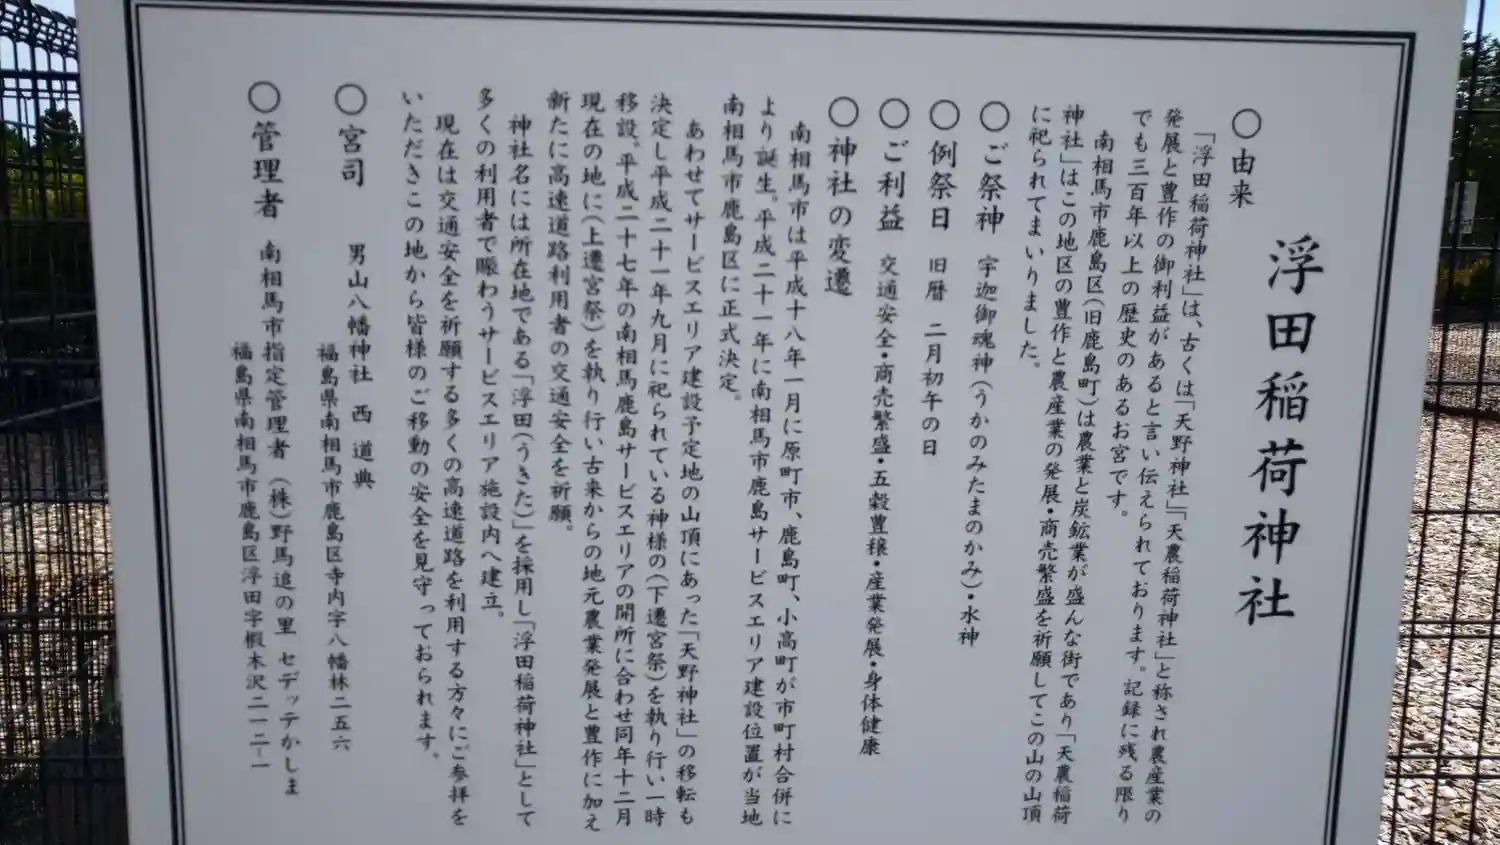 浮田稲荷神社
○由来
「浮田稲荷神社」は、古くは「天野神社」「天農稲荷神社」と称され農産業の
発展と豊作の御利益があると言い伝えられております。記録に残る限り
でも三百年以上の歴史のあるお宮です。
南相馬市鹿島区(旧鹿島町)は農業と炭鉱業が盛んな街であり「天農稲荷
神社」はこの地区の豊作と農産業の発展・商売繁盛を祈願してこの山の山頂
に祀られてまいりました。
○ご祭神 宇迦御魂神(うかのみたまのかみ)・水神
○例祭日 旧暦 二月初午の日
○ご利益 交通安全・商売繁盛・五穀豊穣・産業発展・身体健康
○神社の変遷
南相馬市は平成十八年一月に原町市、鹿島町、小高町が市町村合併に
より誕生。平成二十一年に南相馬市鹿島サービスエリア建設位置が当地
南相馬市鹿島区に正式決定。
あわせてサービスエリア建設予定地の山頂にあった「天野神社」の移転も
決定し平成二十一年九月に祀られている神様の(下遷宮祭)を執り行い一時
移設。平成二十七年の南相馬鹿島サービスエリアの開所に合わせ同年十二月
現在の地に(上遷宮祭)を執り行い古来からの地元農業発展と豊作に加え
新たに高速道路利用者の交通安全を祈願。
神社名には所在地である「浮田(うきた)」を採用し「浮田稲荷神社」として
多くの利用者で賑わうサービスエリア施設内へ建立。
現在は交通安全を祈願する多くの高速道路を利用する方々にご参拝を
いただきこの地から皆様のご移動の安全を見守っておられます。
○宮司 男山八幡神社 西 道典
福島県南相馬市鹿島区寺内字八幡林二五六
○管理者 南相馬市指定管理者 (株)野馬追の里 セデッテかしま
福島県南相馬市鹿島区浮田字椵木沢二一二-一